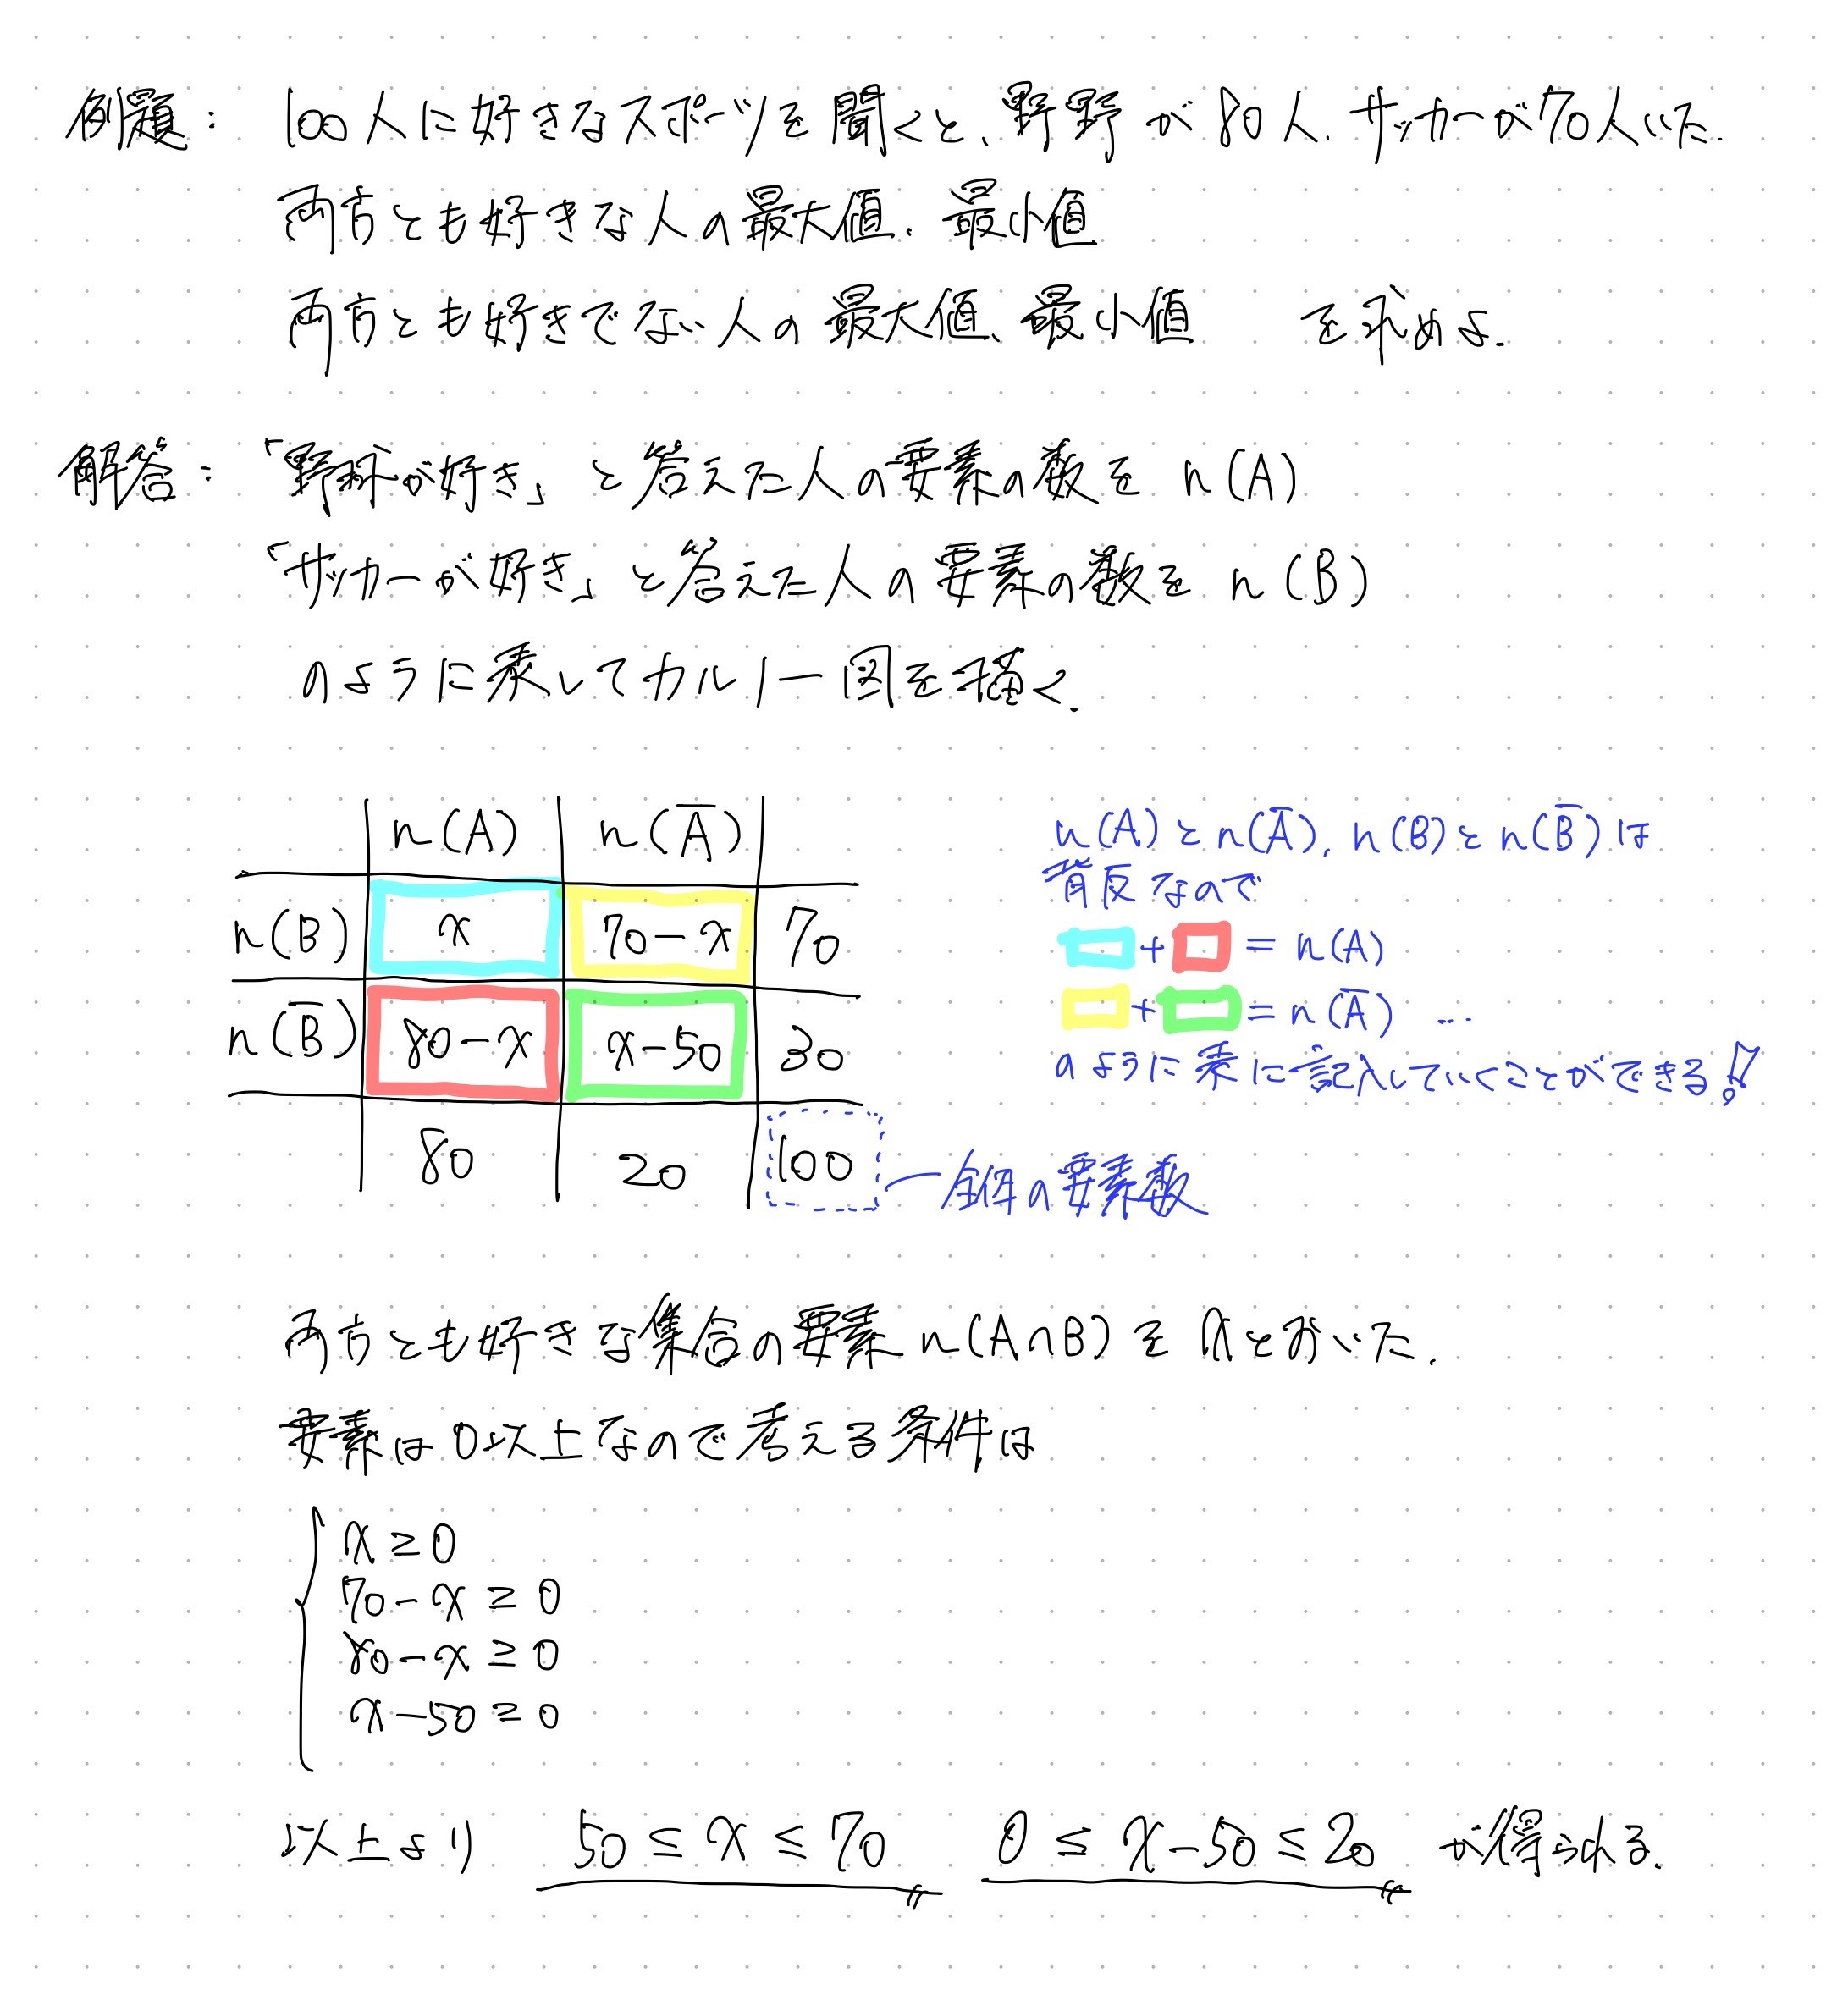 例題： 100人に好きなスポーツを聞くと、野野が80人、サッカーが70人いた.
両方とも好きな人の最大値、最小値
両方とも好きでない人の最大値、最小値 を求めよ.
解答：「野球が好き」と答えた人の要素の数を n(A)
「サッカーが好き」と答えた人の要素の数を n(B)
のように表してカルノー図を描く.
n(A) n(A̅)
n(B) x 70-x 70
n(B̅) 80-x x-50 30
80 20 100
n(A)とn(A̅), n(B)とn(B̅)は
背反なので
+ = n(A)
+ = n(A̅) …
のように表に記入していくことができる!!
全体の要素数
両方とも好きな集合の要素n(A∩B)をxとおいた.
要素は0以上なので考える条件は
x≧0
70-x≧0
80-x≧0
x-50≧0
以上より 50≦x≦70 0≦x-50≦20 が得られる.